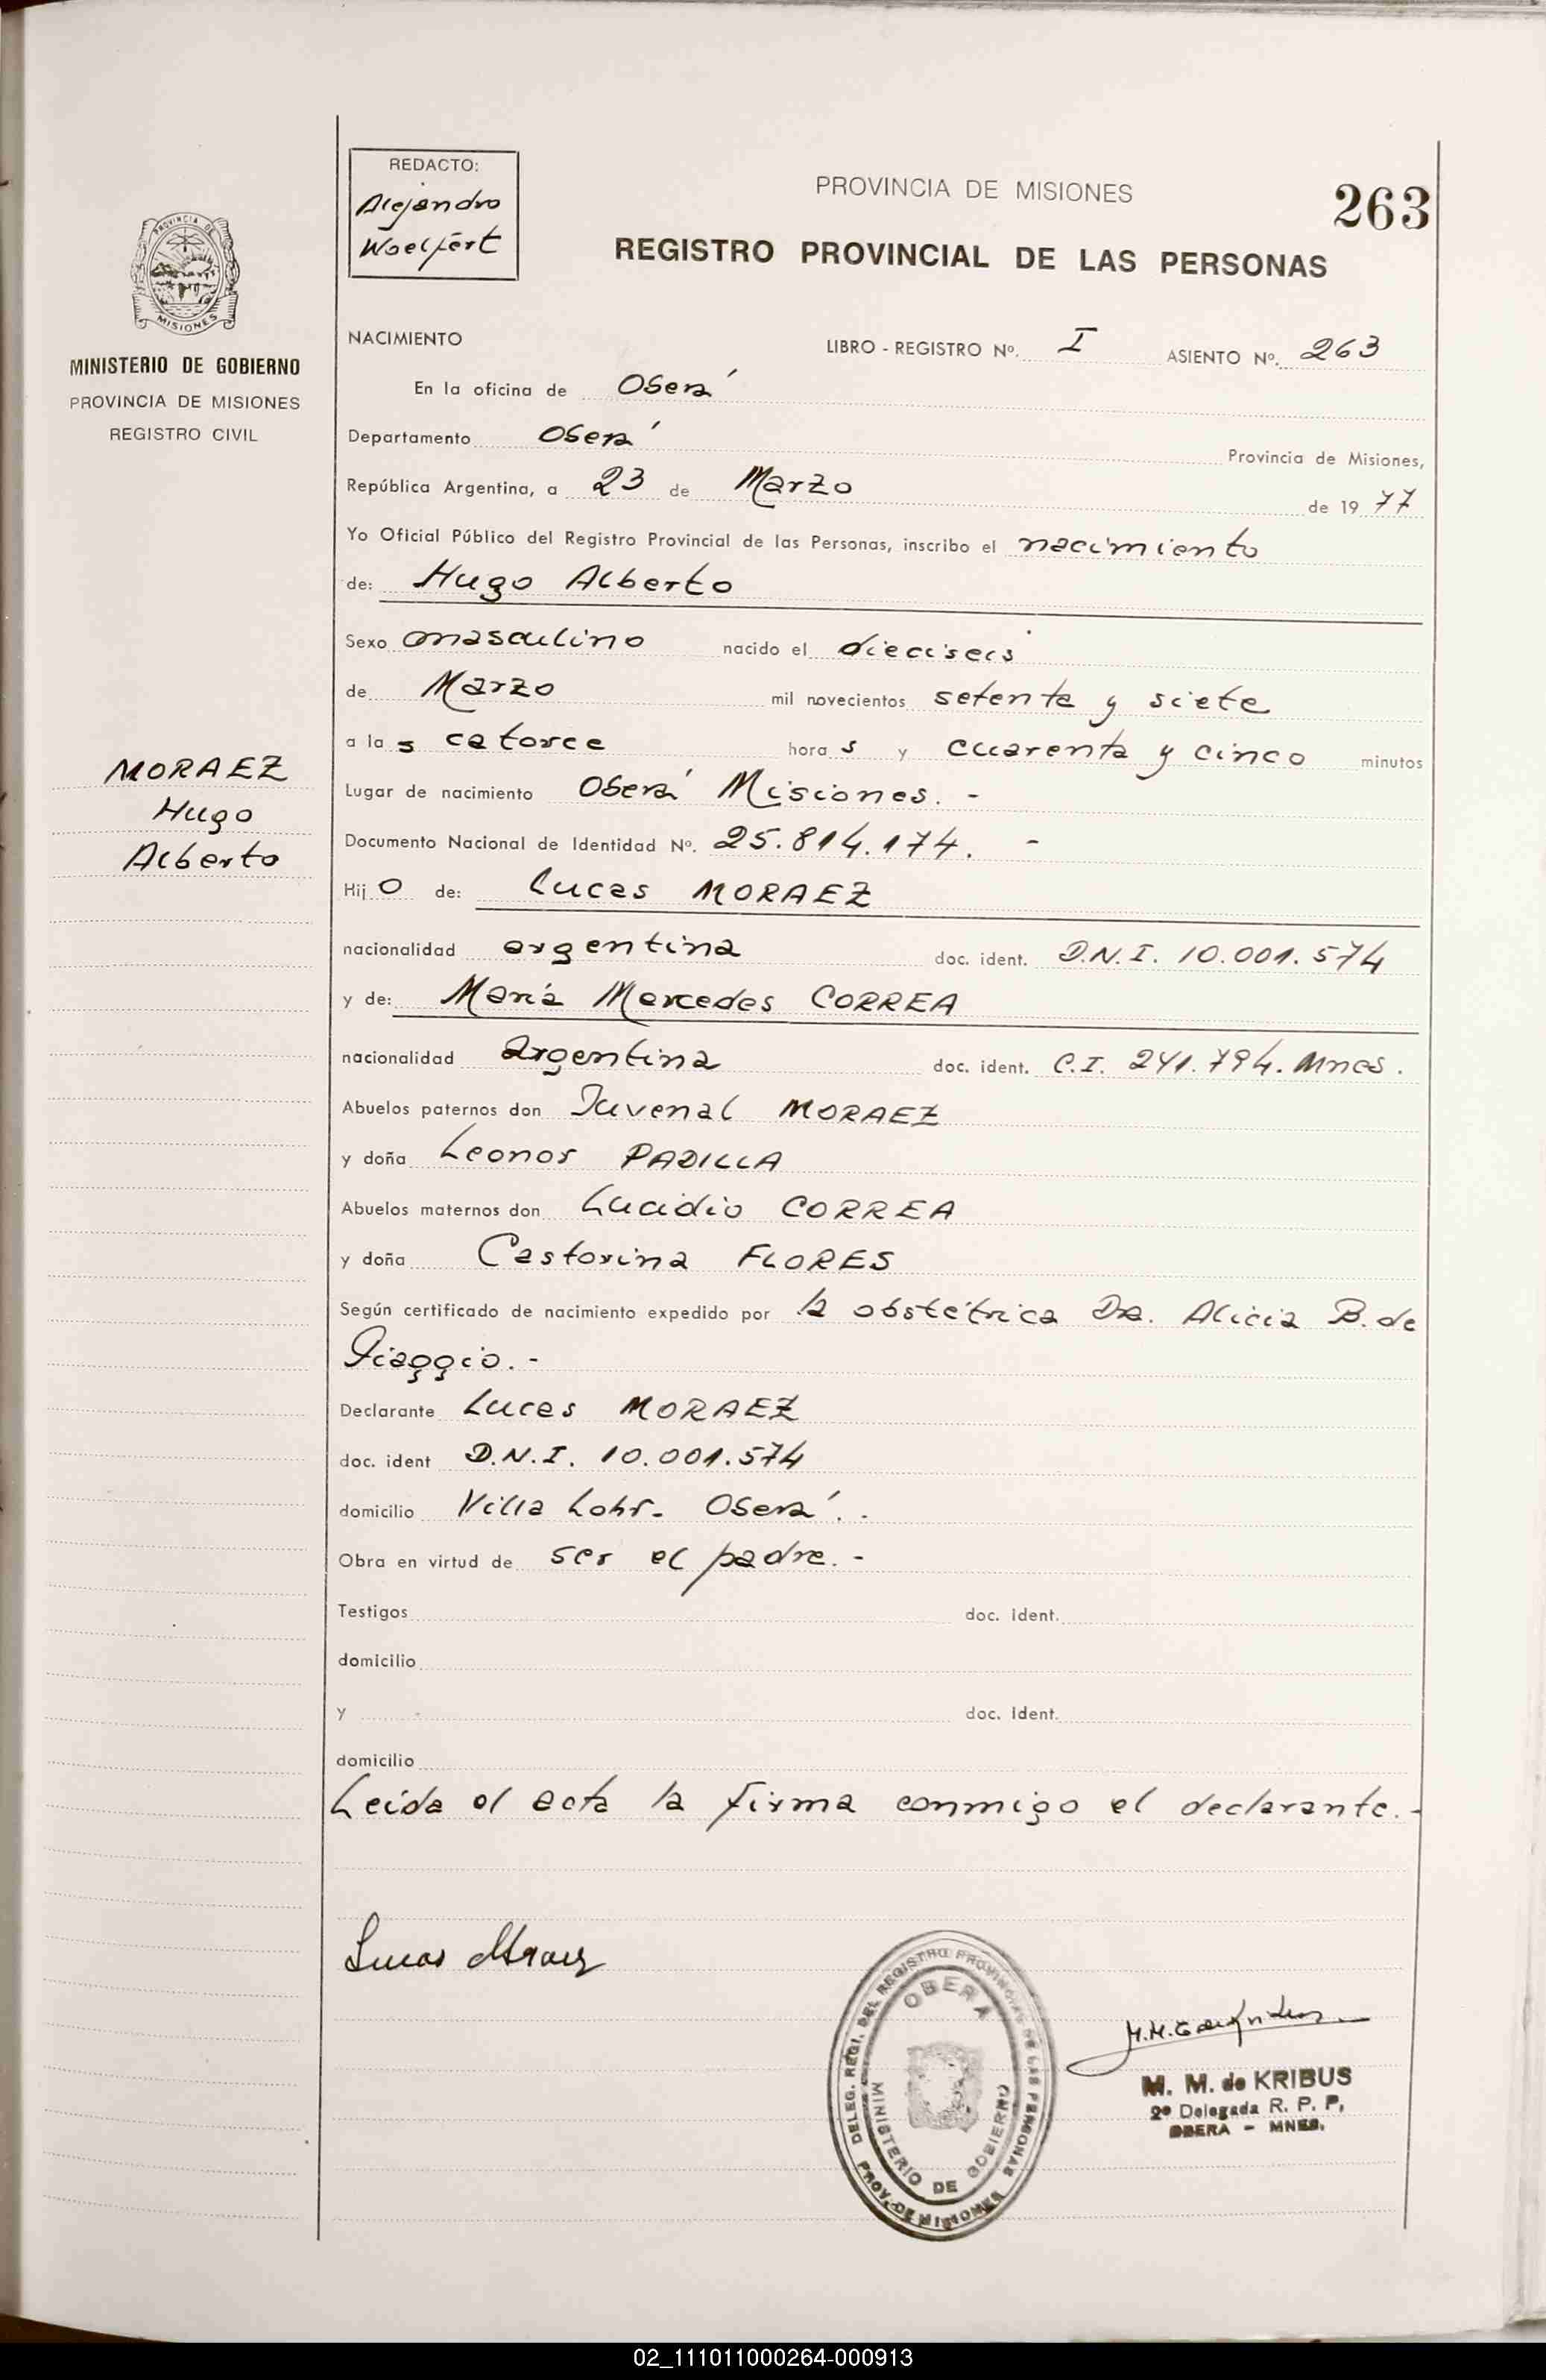 REDACTO:
Alejandro
Woelfert
PROVINCIA DE MISIONES
263
REGISTRO PROVINCIAL DE LAS PERSONAS
PROVINCIA DE
MISIONES
MINISTERIO DE GOBIERNO
PROVINCIA DE MISIONES
REGISTRO CIVIL
NACIMIENTO LIBRO - REGISTRO Nº. I ASIENTO Nº. 263
En la oficina de Oberá
Departamento Oberá Provincia de Misiones,
República Argentina, a 23 de Marzo de 19 77
Yo Oficial Público del Registro Provincial de las Personas, inscribo el nacimiento
de: Hugo Alberto
Sexo masculino nacido el dieciseis
de Marzo mil novecientos setenta y siete
a las catorce horas y cuarenta y cinco minutos
MORAEZ
Hugo
Alberto
Lugar de nacimiento Oberá Misiones. -
Documento Nacional de Identidad Nº. 25.814.174. -
Hijo de: Lucas MORAEZ
nacionalidad argentina doc. ident. D.N.I. 10.001.574
y de: María Mercedes CORREA
nacionalidad argentina doc. ident. C.I. 241.794. Mnes.
Abuelos paternos don Juvenal MORAEZ
y doña Leonor PADILLA
Abuelos maternos don Lucidio CORREA
y doña Castorina FLORES
Según certificado de nacimiento expedido por la obstétrica Dra. Alicia B. de
Piaggio. -
Declarante Lucas MORAEZ
doc. ident D.N.I. 10.001.574
domicilio Villa Lohr. Oberá. .
Obra en virtud de ser el padre. -
Testigos doc. ident.
domicilio
y doc. ident.
domicilio
Leída el acta la firma conmigo el declarante. -
Lucas Moraez
DELEG. REGI. DEL REGISTRO PROVINCIAL DE LAS PERSONAS
OBERA
MINISTERIO DE GOBIERNO
PROV. DE MISIONES
M. M. de KRIBUS
2º Delegada R. P. P.
OBERA - MNES.
02_111011000264-000913